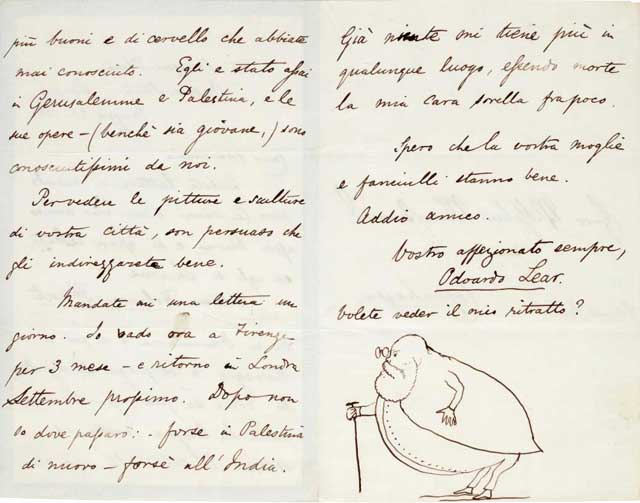 più buoni e di cervello che abbiate
mai conosciuto. Egli e stato assai
in Gerusalemme e Palestina, e le
sue opere – (benchè sia giovane,) sono
conosciutissimi da noi.
Per vedere le pitture e sculture
di vostra città, son persuaso che
gli indirezzarete bene.
Mandate mi una lettera un
giorno. Io vado ora a Firenze
per 3 mese – e ritorno in Londra
Settembre prossimo. Dopo non
so dove passarò: forse in Palestina
di nuovo – forsè all'India.
Già niente mi tiene più in
qualunque luogo, essendo morte
la mia cara sorella frapoco.
Spero che la vostra moglie
e fanciulli stanno bene.
Addio amico.
Vostro affezionato sempre,
Odoardo Lear.
Volete veder il mio ritratto?